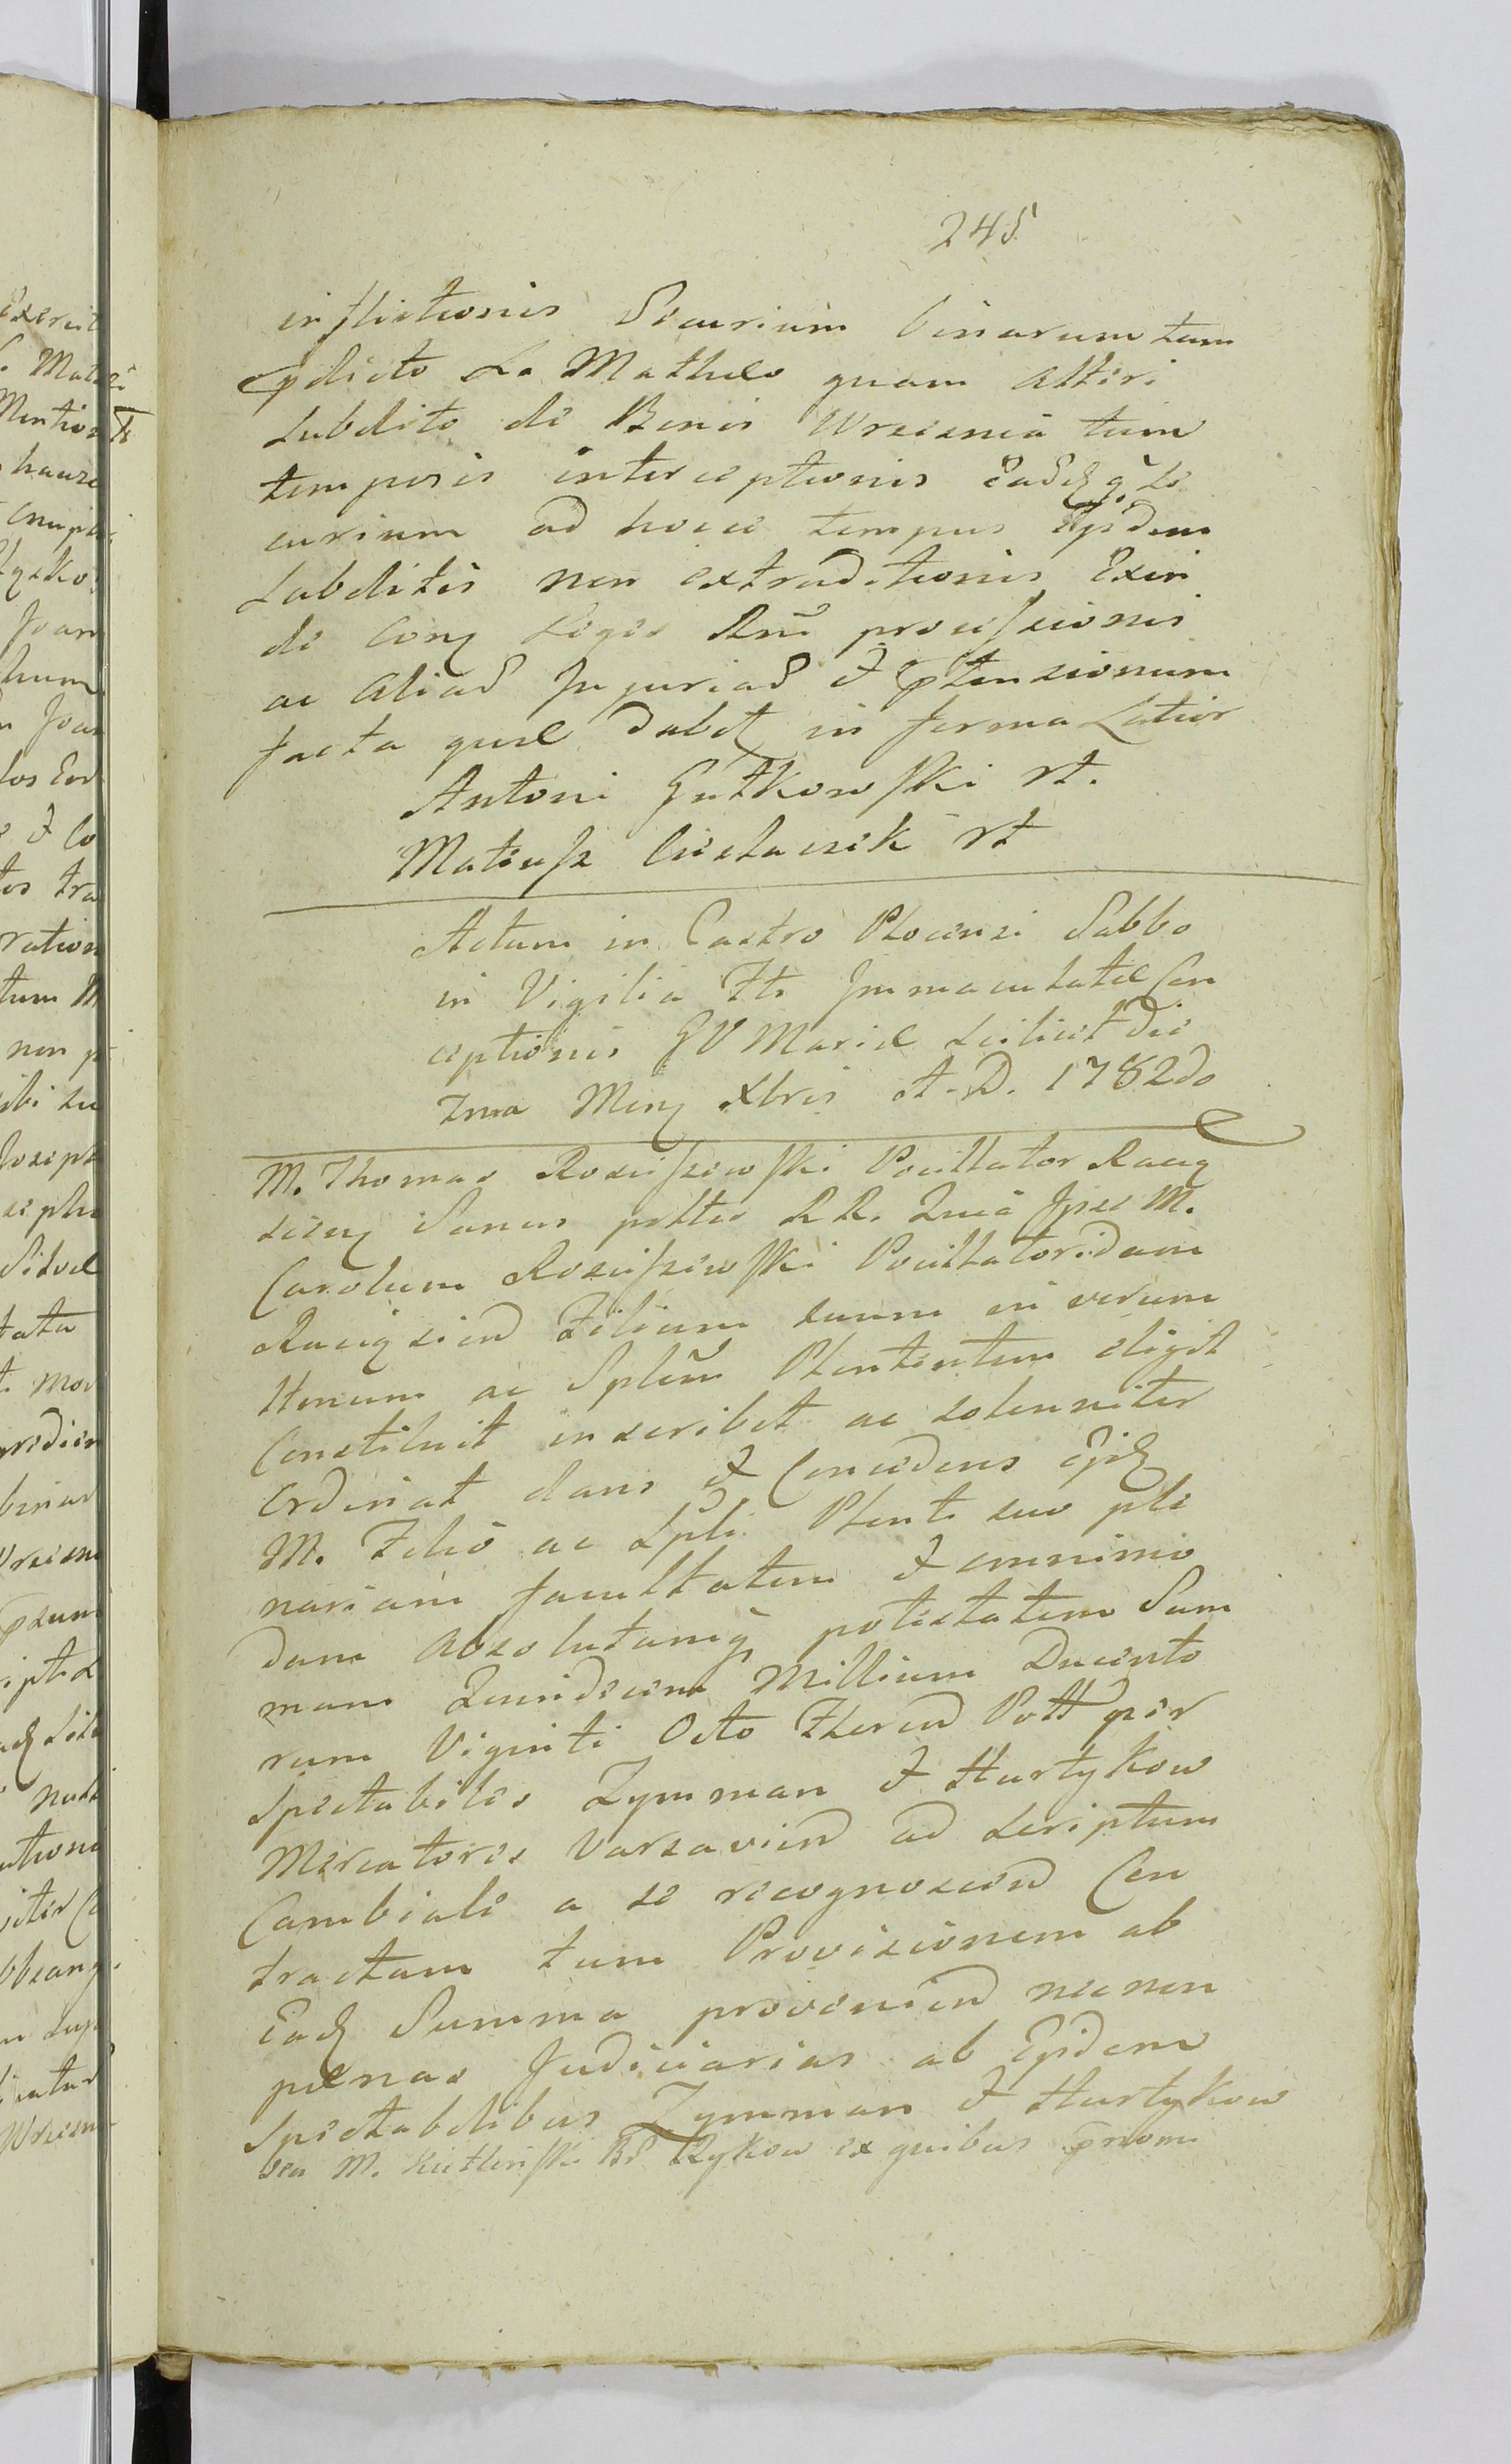 245
inflictionis Securium binarum tam
pdicto L. Matheo quam alteri
Subdito de Bonis Wrzesnia tum
temporis interceptionis Eadq q Se
curium ad hocce tempus Ejsdem
Subditis non extraditionis Exin
de Conq Legis Rni processionis
ac alias Injurias & ptensionum
facta quae dabt in forma Latior
Antoni Gutkowski rt.
Mateusz Ciesłaczik rt
Actum in Castro Plocensi Sabbo
in Vigilia Fti Immaculatae Con
ceptionis GV Mariae scilicet die
7ma Mens Xbris A. D. 1782do
M. Thomas Rosciszewski Pocillator Raciq
zieny Sanus pttte RR. Quia Ipse M.
Carolum Rosciszewski Pocillatoridam
Raciqziend Filium suum in verum
ttonum ac Splem Plentiotem eligit
Constituit inscribit ac solenniter
Ordinat dans & Concedens Ejdq
M. Filio ac Spli Plenti suo ple
nariam facultatem & omnimo
dam absolutamq potestatem Sum
mam Quindecem Millium Ducento
rum Viginti Octo Floren Poll per
Spectabiles Zymman & Hurtykow
Mercatores Varsavien ad Scriptum
Cambiale a se recognoscen Con
tractam tum Provisionem ab
Eadq Summa provenien necnon
paenas Judiciarias ab Ejsdem
Spectabilibus Zymman & Hurtykow
seu M. Rykow ex quibus pnom